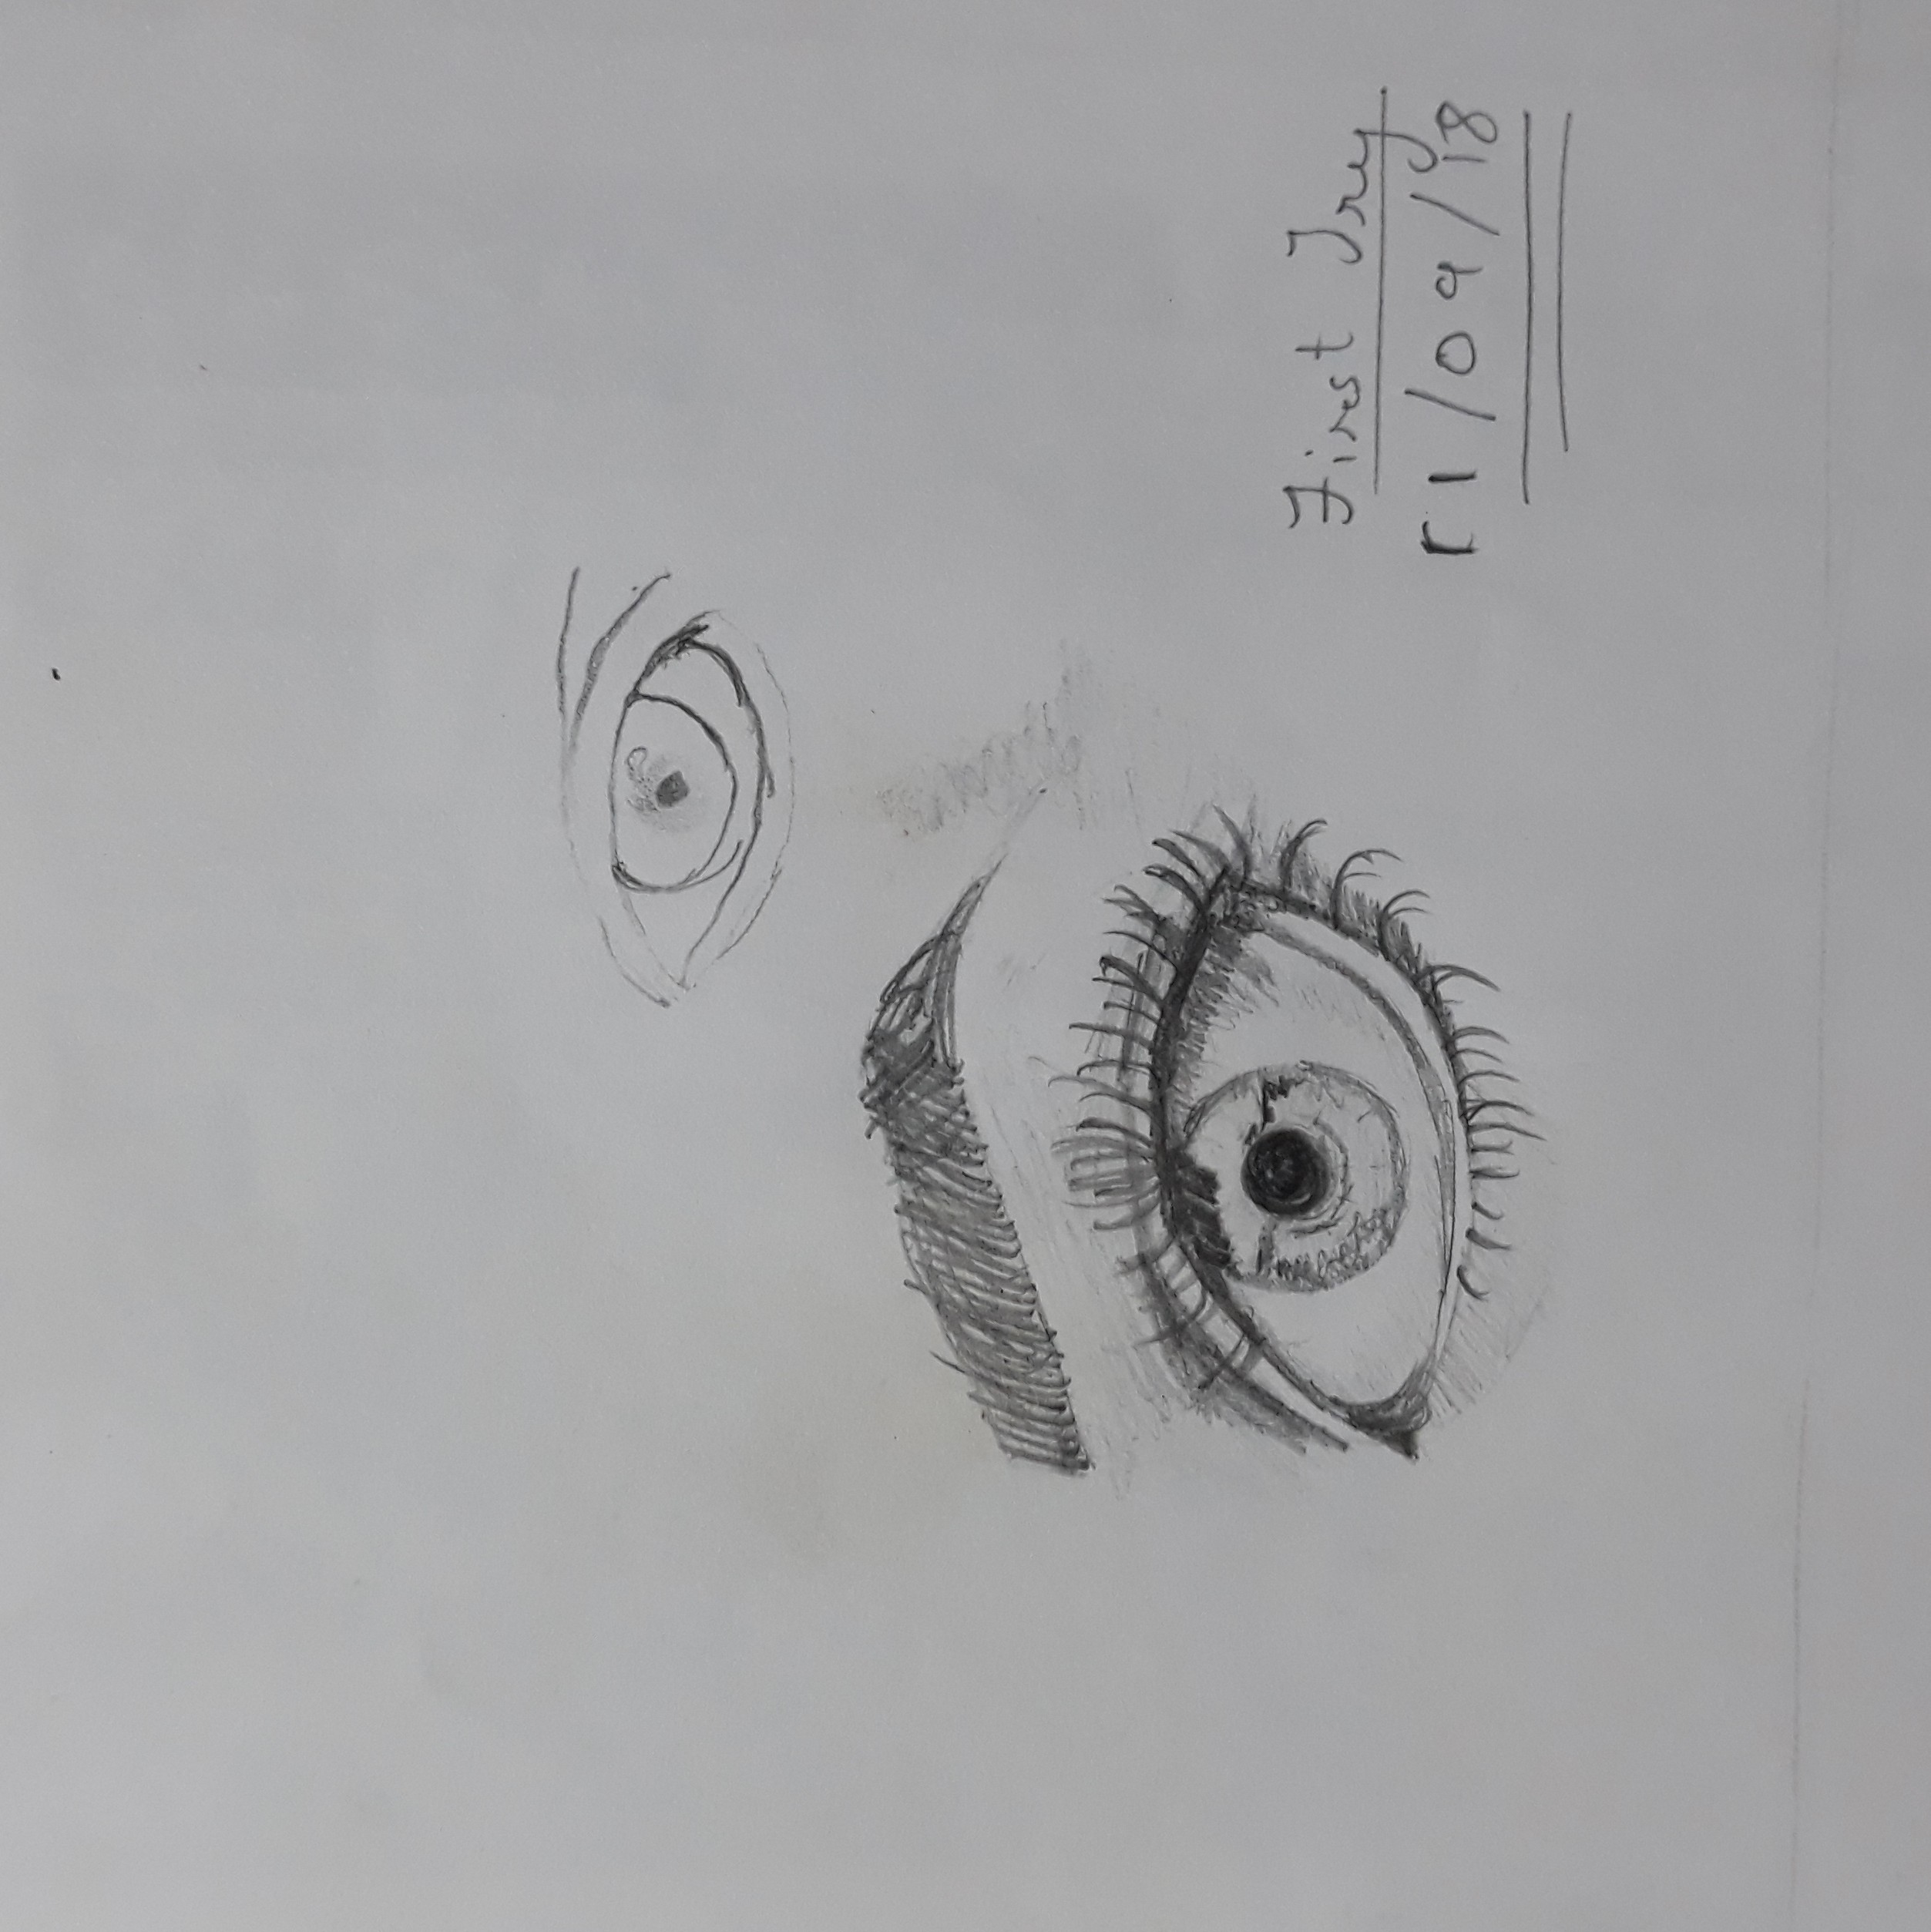 First Try
11/09/18